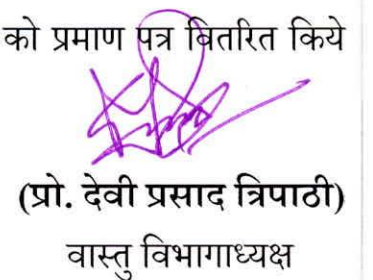 को प्रमाण पत्र वितरित किये
(प्रो. देवी प्रसाद त्रिपाठी)
वास्तु विभागाध्यक्ष